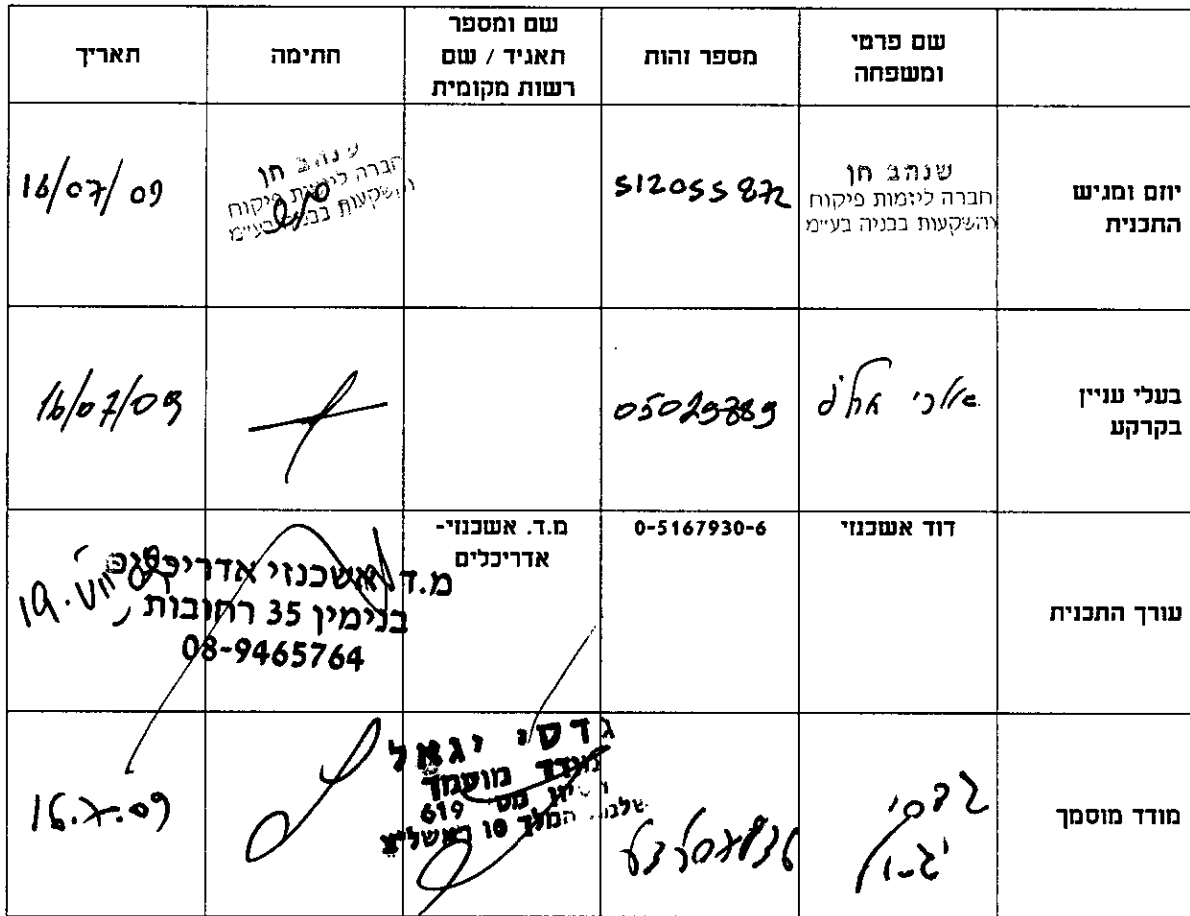 שם פרטי
ומשפחה
מספר זהות
שם ומספר
תאגיד / שם
רשות מקומית
חתימה
תאריך
יוזם ומגיש
התכנית
שנהב חן
חברה ליזמות פיקוח
והשקעות בבניה בע״מ
512055872
שנהב חן
חברה ליזמות פיקוח
והשקעות בבניה בע״מ
16/07/09
בעלי עניין
בקרקע
05029889
16/07/09
עורך התכנית
דוד אשכנזי
0-5167930-6
מ.ד. אשכנזי-
אדריכלים
מ.ד אשכנזי אדריכלים
בנימין 35 רחובות
08-9465764
19.VII
מודד מוסמך
גדסי
יגאל
גדסי יגאל
מודד מוסמך
619
המלך 10 ראשל״צ
16.7.09